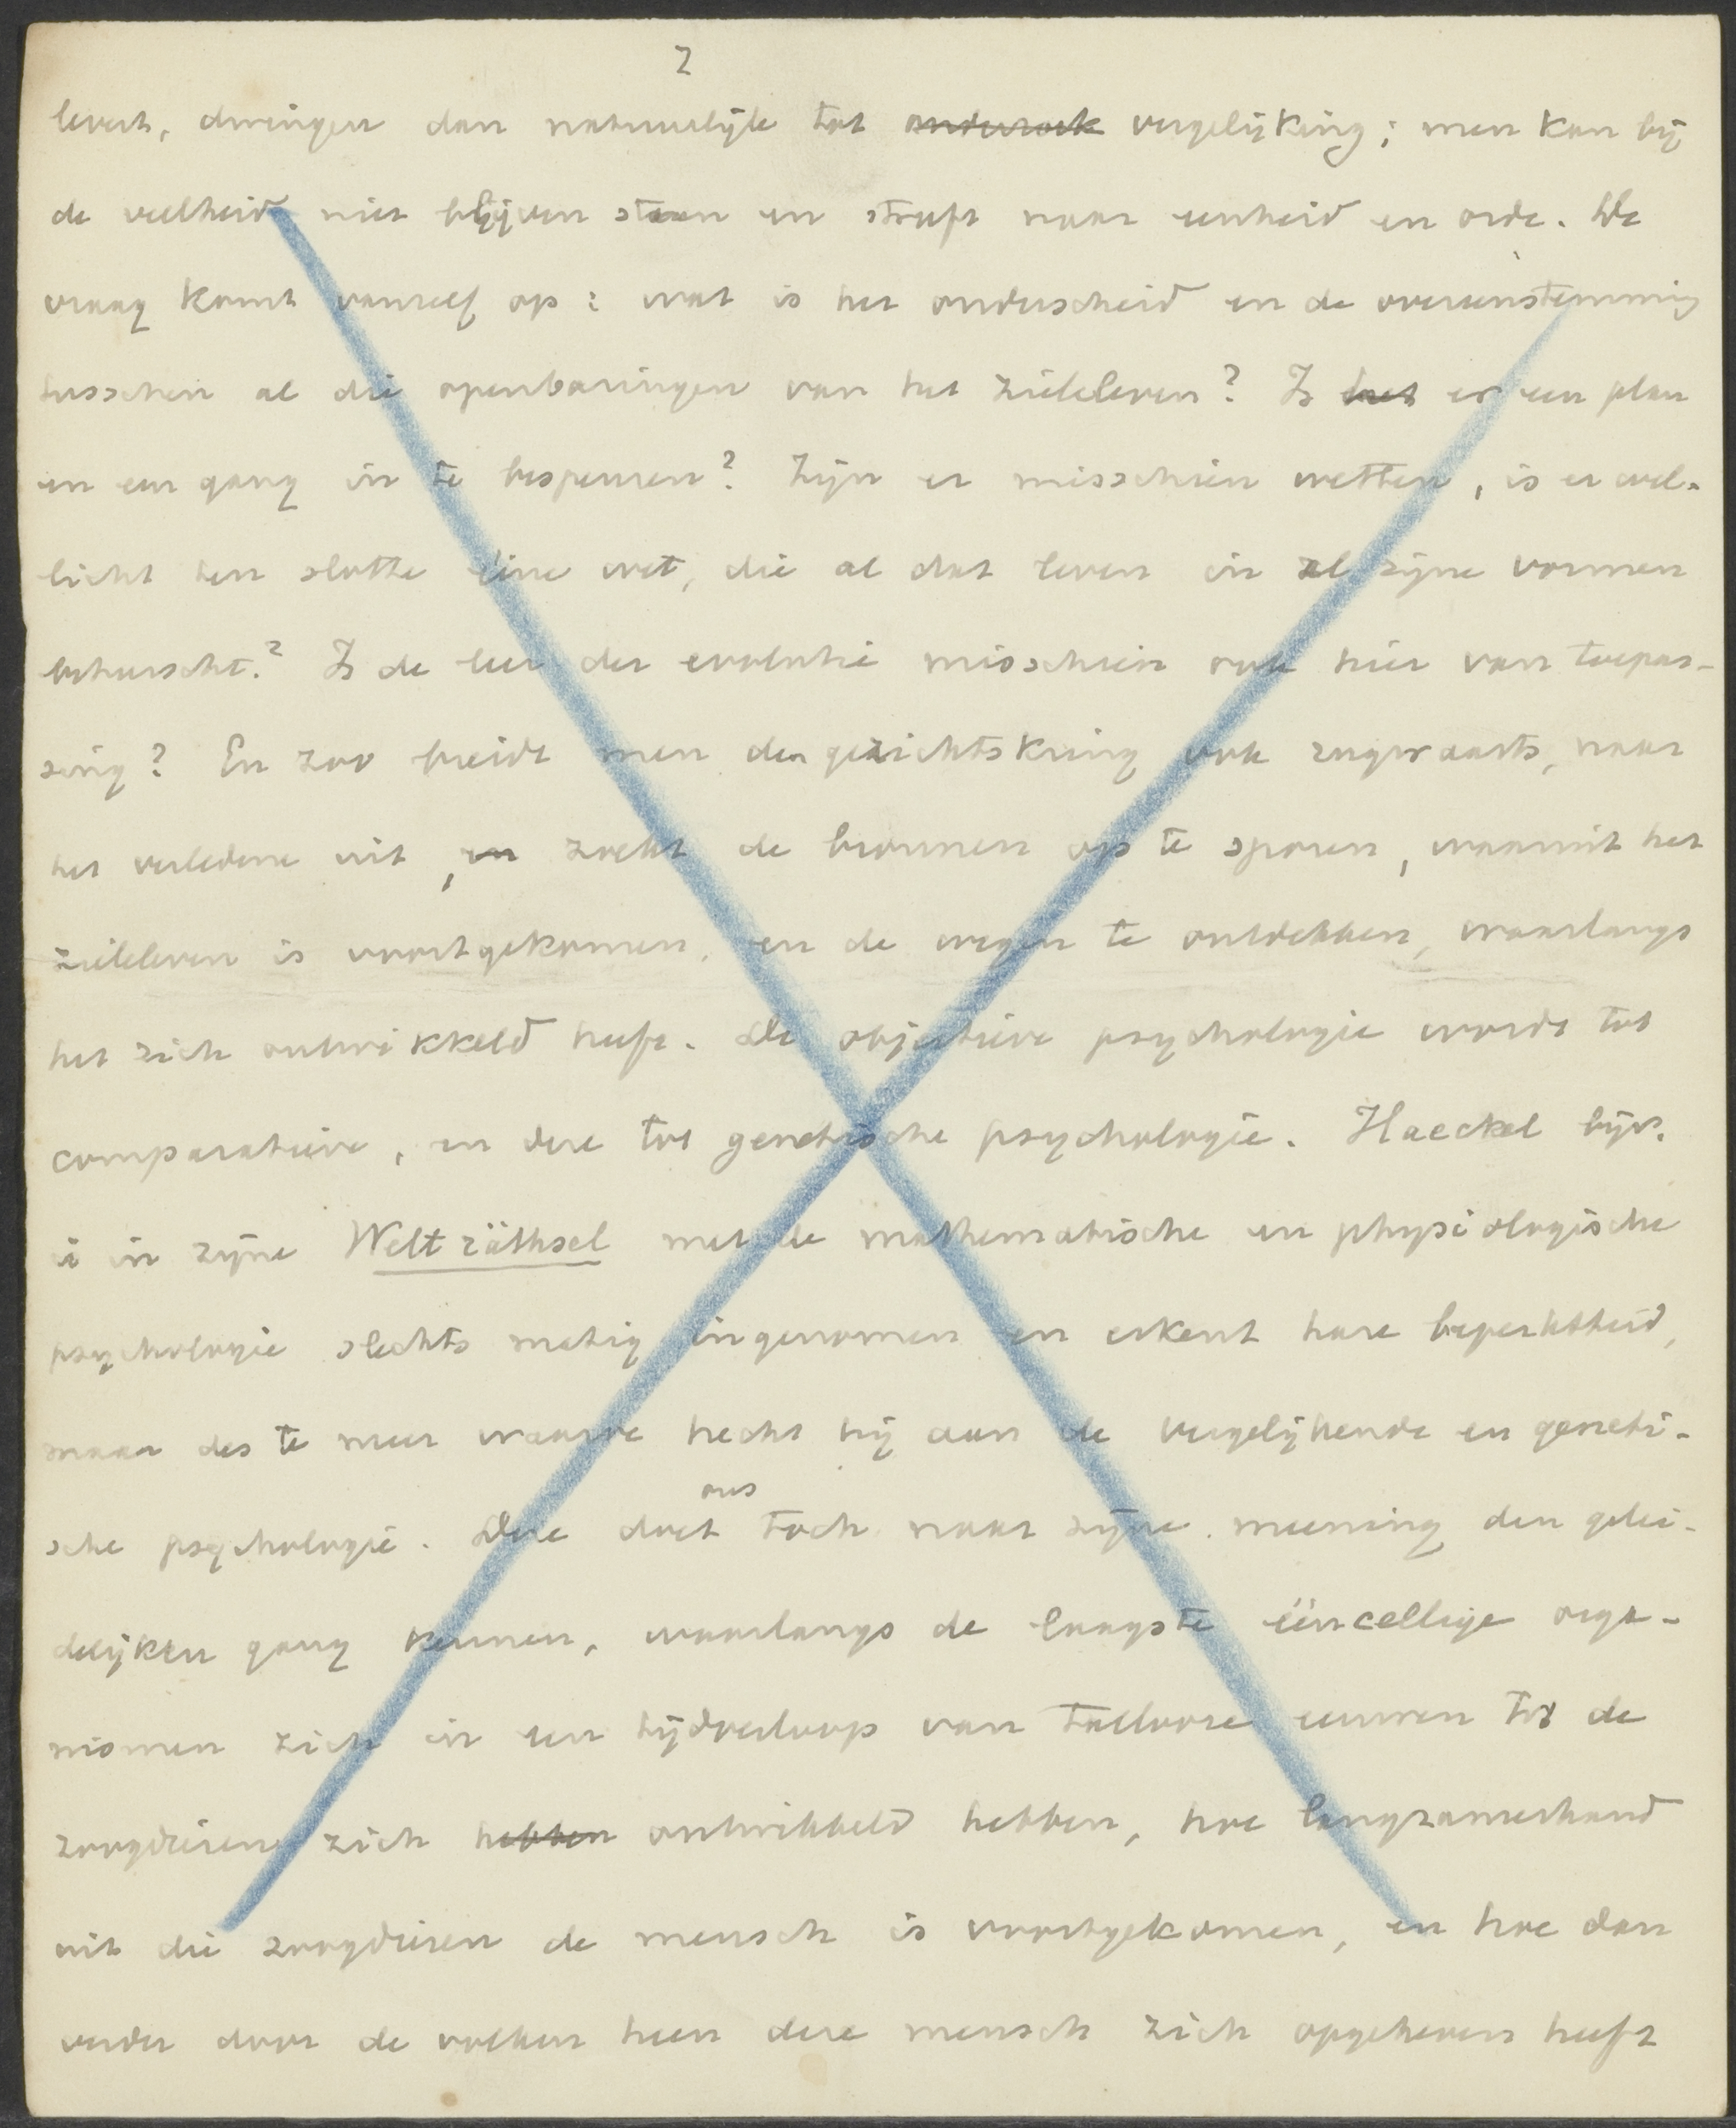 2
levert, dwingen dan natuurlijk tot onderzoek vergelijking; men kan bij
de veelheid niet blijven staan en streeft naar eenheid en orde. De
vraag komt vanzelf op: wat is het onderscheid en de overeenstemming
tusschen al die openbaringen van het zieleleven? Is het er een plan
en een gang in te bespeuren? Zijn er misschien wetten, is er wel-
licht ten slotte ééne wet, die al dat leven in al zijne vormen
beheerscht? Is de leer der evolutie misschien ook hier van toepas-
sing? En zoo breidt men den gezichtskring ook rugwaarts, naar
het verledene uit, en zoekt de bronnen op te sporen, waaruit het
zieleleven is voortgekomen, en de wegen te ontdekken, waarlangs
het zich ontwikkeld heeft. De objectieve psychologie wordt tot
comparatieve, en deze tot genetische psychologie. Haeckel bijv.
is in zijne Welträthsel met de mathematische en physiologische
psychologie slechts matig ingenomen en erkent hare beperktheid,
maar des te meer waarde hecht hij aan de vergelijkende en geneti-
sche psychologie. Deze doet ons toch naar zijne meening den gelei-
delijken gang kennen, waarlangs de laagste ééncellige orga-
nismen zich in een tijdverloop van tallooze eeuwen tot de
zoogdieren zich hebben ontwikkeld hebben, hoe langzamerhand
uit die zoogdieren de mensch is voortgekomen, en hoe dan
verder door de volken heen deze mensch zich opgeheven heeft